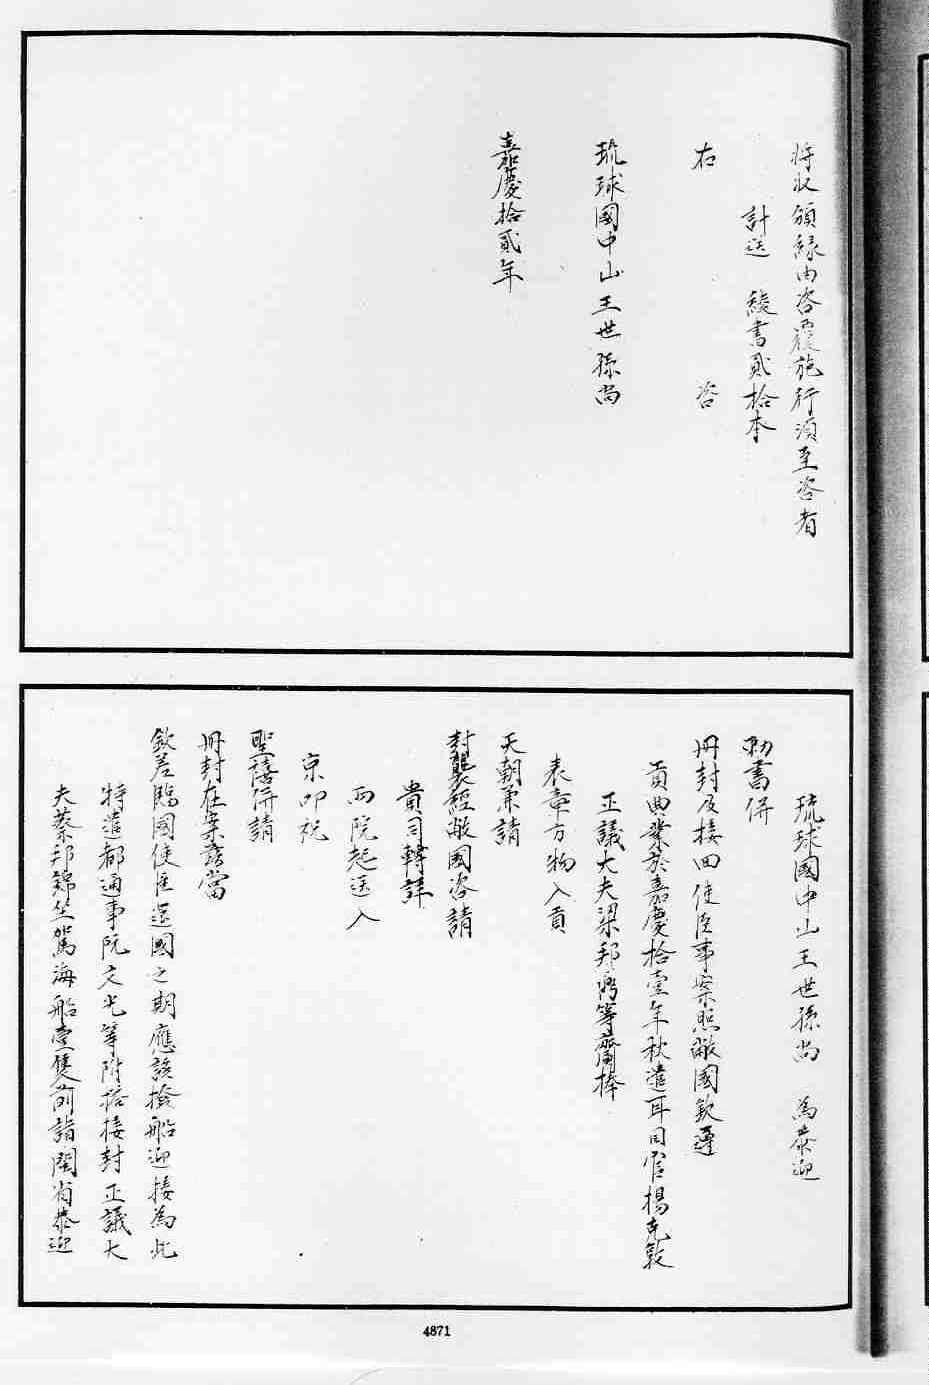 将収頒緣由咨覆施行湏至咨者
計送　綾書貳拾本
右　咨
琉球國中山王世孫尚
嘉慶拾貳年
琉球國中山王世孫尚　為恭迎
勅書併
冊封及接回使臣事案照敝國欽遵
貢典業於嘉慶拾壹年秋遣耳目官楊克敦
正議大夫梁邦弼等齎捧
表章方物入貢
天朝兼請
封襲經敝國咨請
貴司轉詳
両院起送入
京叩祝
聖禧併請
冊封在案茲當
欽差臨國使臣還國之期應該撥船迎接為此
特遣都通事阮文光等附搭接封正議大
夫蔡邦錦坐駕海船壹隻前詣閩省恭迎
4871